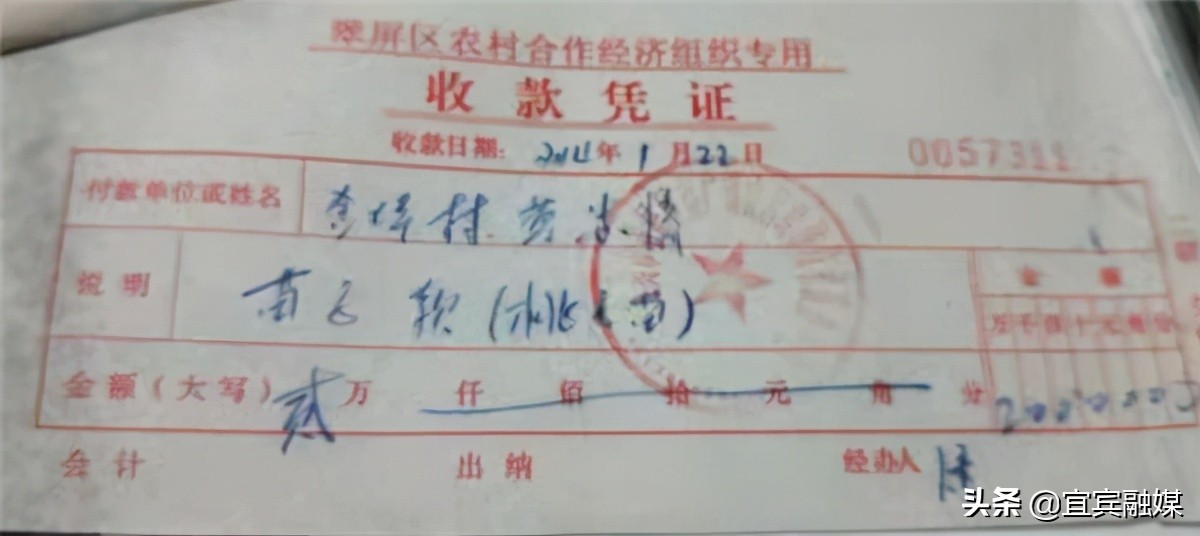 翠屏区农村合作经济组织专用
收款凭证
收款日期: 2014年1月22日
0057311
付款单位或姓名 村
说明 苗 款(桃 苗)
金额
万千佰十元角分
金额(大写) 贰万 仟 佰 拾 元 角 分 2000000
会计 出纳 经办人
头条 @宜宾融媒